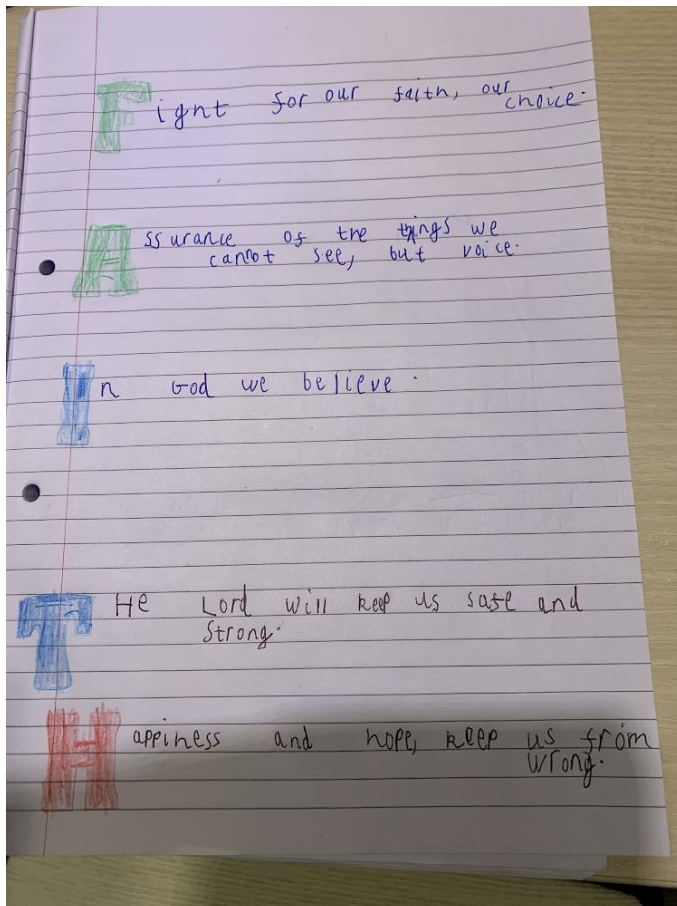 Fight for our faith, our
choice.
Assurance of the things we
cannot see, but voice.
In God we believe.
THe Lord will keep us safe and
Strong.
Happiness and hope, keep us from
Wrong.